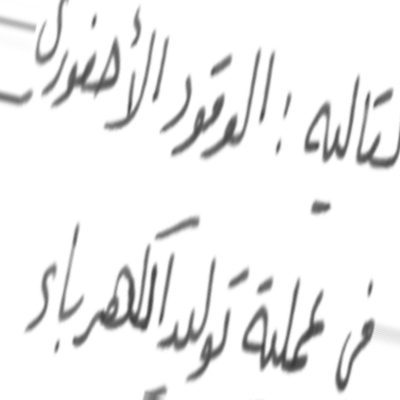 لتاليه : الوقود الأحفوري
في عملية توليد الكهرباء